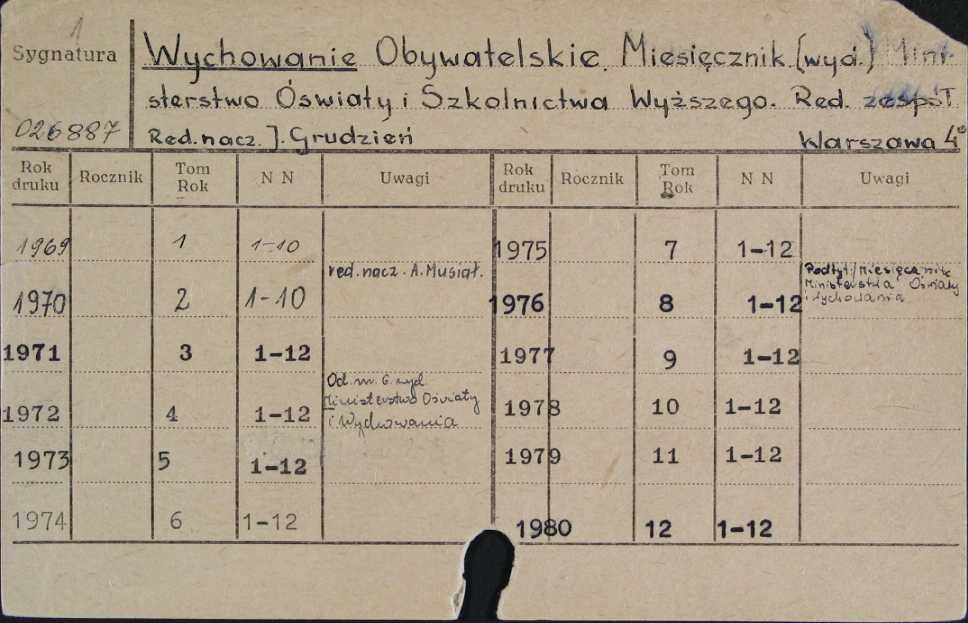 1
Sygnatura
026887
Wychowanie Obywatelskie. Miesięcznik. (wyd.) Mini-
sterstwo Oświaty i Szkolnictwa Wyższego. Red. zespół
Red. nacz. J. Grudzień Warszawa 4°
Rok druku Rocznik Tom Rok N N Uwagi Rok druku Rocznik Tom Rok N N Uwagi
1969 1 1-10 1975 7 1-12
1970 2 1-10 red. nacz. A. Musiał. 1976 8 1-12 Podtyt: Miesięcznik Ministerstwa Oświaty i Wychowania
1971 3 1-12 1977 9 1-12
1972 4 1-12 Od m. 6. wyd Ministerstwo Oświaty i Wychowania 1978 10 1-12
1973 5 1-12 1979 11 1-12
1974 6 1-12 1980 12 1-12